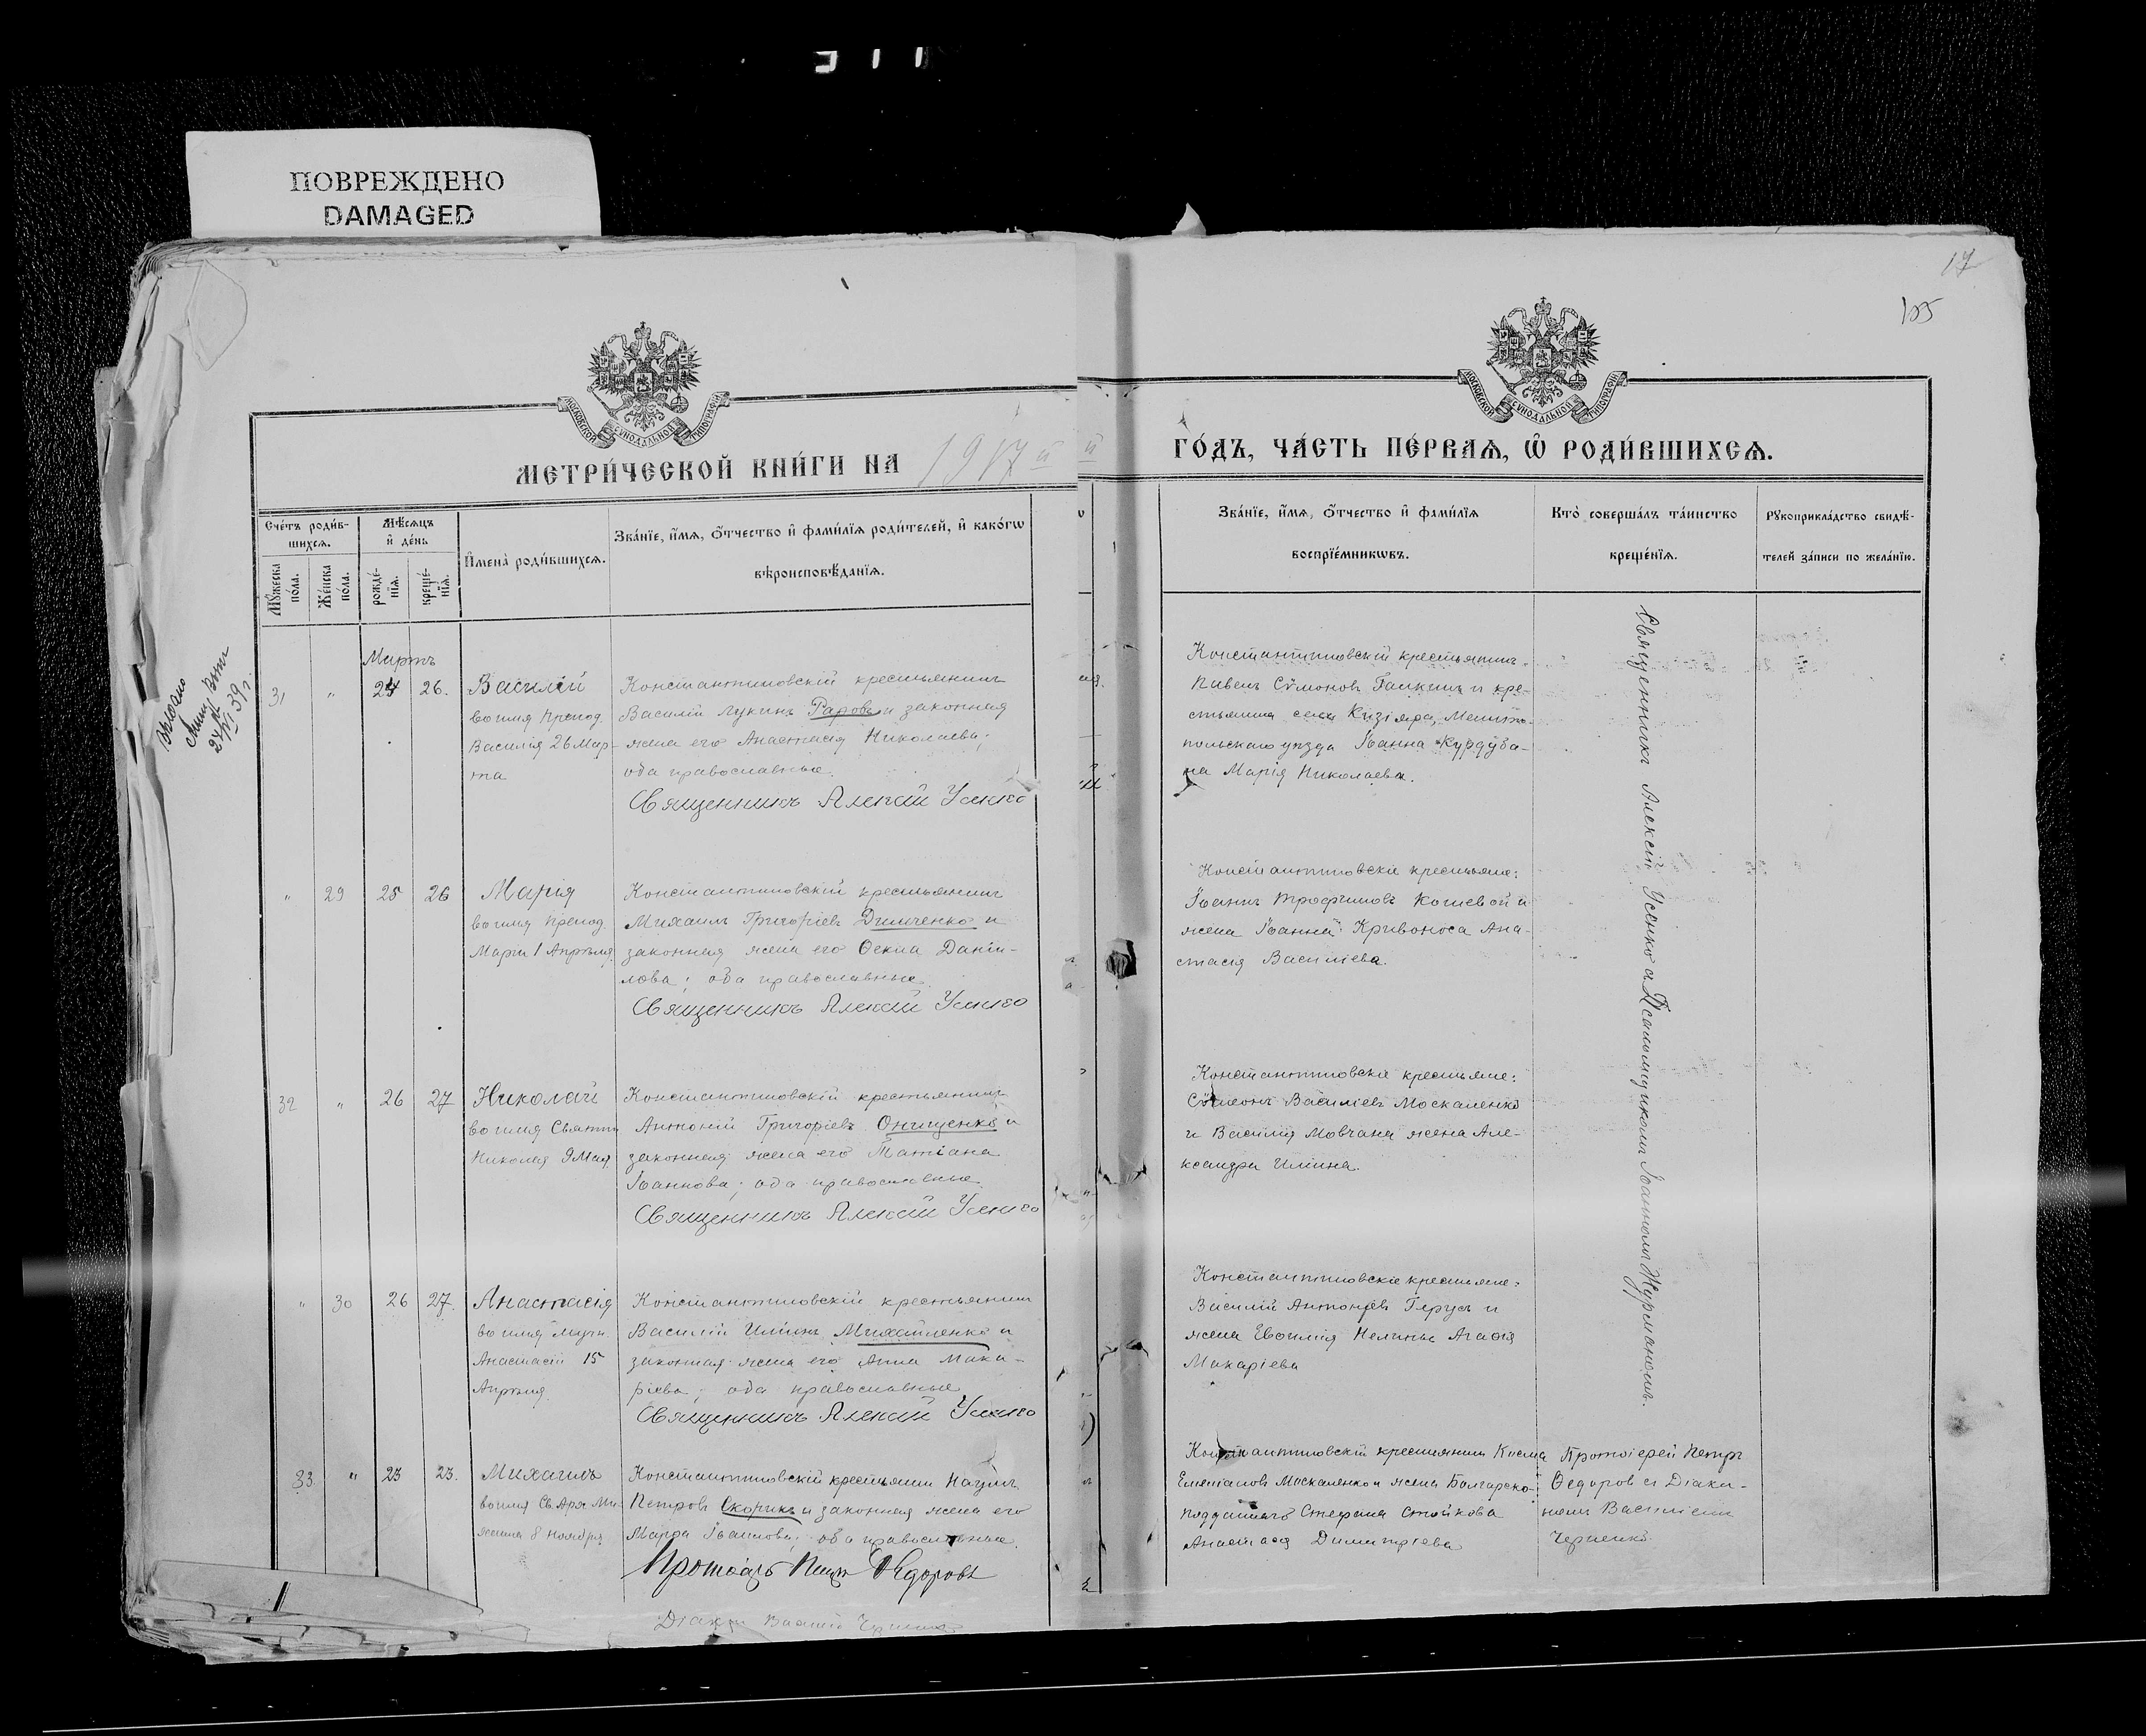 ПОВРЕЖДЕНО
DAMAGED
17
105
МОСКОВСКОЙ СѴНОДАЛЬНОЙ ТИПОГРАФІИ
МОСКОВСКОЙ СѴНОДАЛЬНОЙ ТИПОГРАФІИ
МЕТРИ́ЧЕСКОЙ КНИ́ГИ НА 1917 й
ГО́ДЪ, ЧА́СТЬ ПЕ́РВАѦ, Ѡ РОДИ́ВШИХСѦ.
Счетъ роди́в-
шихсѧ.
Мꙋжеска
по́ла.
Же́нска
по́ла.
Мѣсѧцъ
и де́нь
рожде́-
нїѧ.
креще́-
нїѧ.
Имена̀ роди́вшихсѧ.
Зва́нїе, и́мѧ, о́тчество и фами́лїѧ роди́телей, и како́гѡ
вѣроисповѣ́данїѧ.
Зва́нїе, и́мѧ, о́тчество и фами́лїѧ
воспрїе́мникѡвъ.
Кто̀ соверша́лъ та́инство
креще́нїѧ.
Рꙋкоприкла́дство свидѣ́-
телей за́писи по жела́нїю.
27/XI 39 г.
Мартъ
31 " 24 26. Василій
во имя препод.
Василія 26 Мар-
та
Константиновскій крестьянинъ
Василій Лукинъ Раровъ и законная
жена его Анастасія Николаева;
оба православные.
Священникъ Алексій Усенко
Константиновскій крестьянинъ
Павелъ Сѵмоновъ Галкинъ и кре-
стьянина села Кизіяра, Мелито-
польскаго уѣзда Іоанна Курдуба-
на Марія Николаева.
Священникъ Алексій Усенко съ Псаломщикомъ Іоанномъ Журманомъ.
" 29 25 26 Марія
во имя препод.
Маріи 1 Апрѣля.
Константиновскій крестьянинъ
Михаилъ Григоріевъ Димченко и
законная жена его Ѳекла Даніи-
лова; оба православные.
Священникъ Алексій Усенко
Константиновскіе крестьяне:
Іоаннъ Трофимовъ Кошевой и
жена Іоанна Кривоноса Ана-
стасія Василіева.
32 " 26 27 Николай
во имя Святит.
Николая 9 Мая
Константиновскій крестьянинъ
Антоній Григоріевъ Онищенко и
законная жена его Татіана
Іоаннова; оба православные.
Священникъ Алексій Усенко
Константиновскіе крестьяне:
Сѵмеонъ Василіевъ Москаленко
и Василія Мовчана жена Але-
ксандра Ильина.
" 30 26 27. Анастасія
во имя Муч.
Анастасіи 15
Апрѣля.
Константиновскій крестьянинъ
Василій Ильинъ Михайленко и
законная жена его Анна Мака-
ріева; оба православные
Священникъ Алексій Усенко
Константиновскіе крестьяне:
Василій Антоніевъ Герусъ и
жена Евѳимія Нелипы Агаѳія
Макаріева
33. " 23 23. Михаилъ
во имя Св. Арх. Ми-
хаила 8 Ноября
Константиновскій крестьянинъ Наумъ
Петровъ Скорикъ и законная жена его
Марѳа Іоаннова; оба православные.
Протоіер. Петръ Ѳедоровъ
Діаконъ Василій Черненко
Константиновскій крестьянинъ Косма
Емеліановъ Москаленко и жена Болгарско-
подданнаго Стефана Стойкова
Анастасія Димитріева
Протоіерей Петръ
Ѳедоровъ съ Діако-
номъ Василіемъ
Черненко.